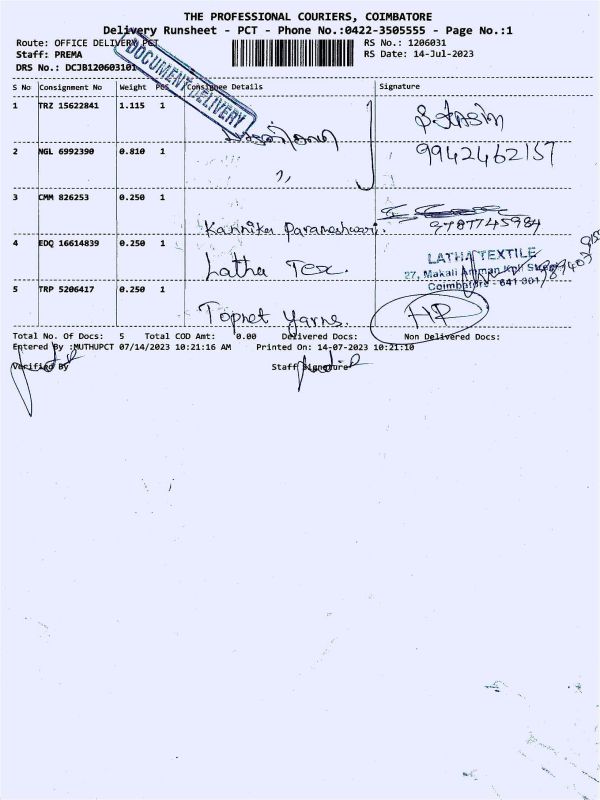 THE PROFESSIONAL COURIERS, COIMBATORE
Delivery Runsheet - PCT - Phone No.:0422-3505555 - Page No.:1
Route: OFFICE DELIVERY PCT
RS No.: 1206031
Staff: PREMA
RS Date: 14-Jul-2023
DRS No.: DCJB120603101
DOCUMENT DELIVERY
S No Consignment No Weight PCS Consignee Details Signature
1 TRZ 15622841 1.115 1
9942462157
2 NGL 6992390 0.810 1 ,,
3 CMM 826253 0.250 1 Kannika Parameshwari. 9787745984
4 EDQ 16614839 0.250 1 Latha Tex.
LATHA TEXTILE
27, Makali Amman Koil Street
Coimbatore - 641 001
5 TRP 5206417 0.250 1 Topnet Yarns. HR
Total No. Of Docs: 5 Total COD Amt: 0.00 Delivered Docs: Non Delivered Docs:
Entered By :MUTHUPCT 07/14/2023 10:21:16 AM Printed On: 14-07-2023 10:21:10
Verified By Staff Signature